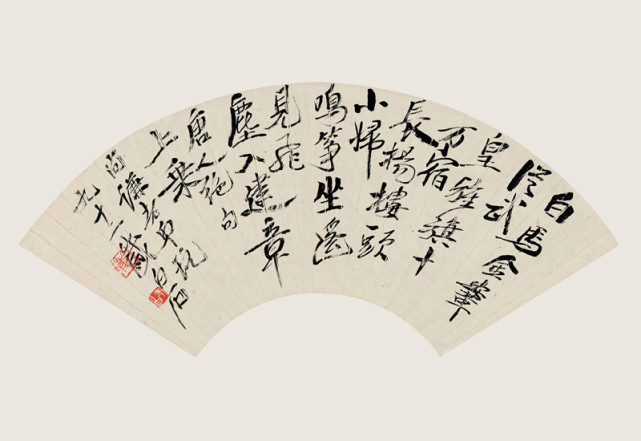 白馬金鞍
從武
皇旌旗十
万宿
長楊樓頭
小婦
鳴箏坐遙
見飛
塵入建章
唐人絕句
上乘
尚謙 白石
九十二歲